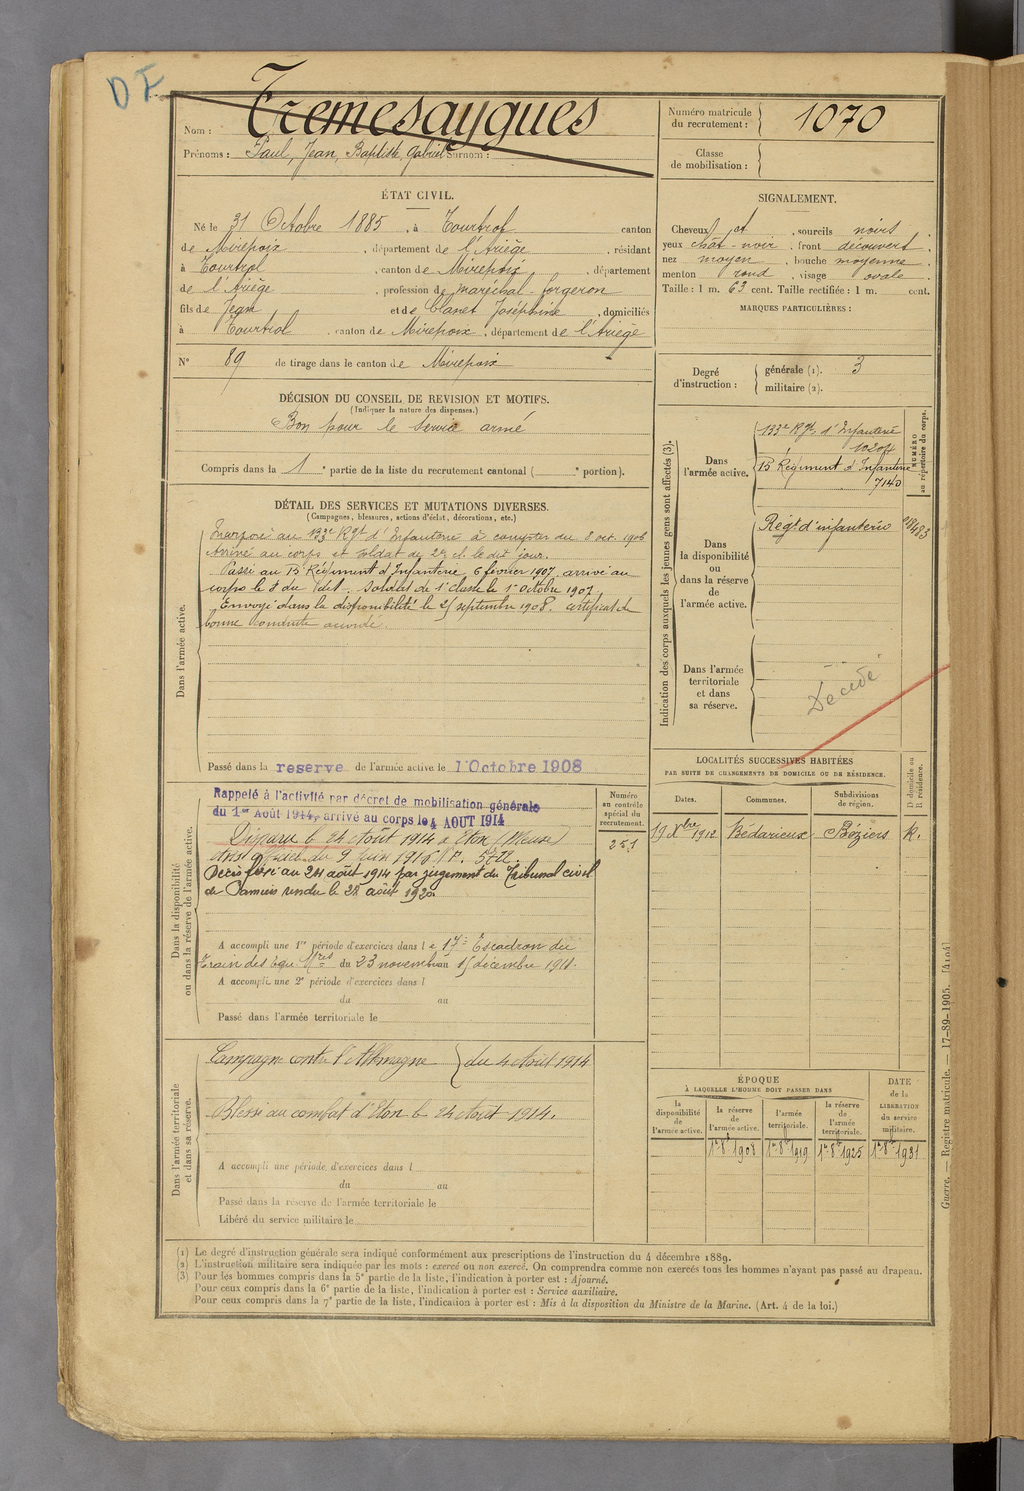 DF
Nom : Tremesaygues
Prénoms : Paul, Jean, Baptiste, Gabriel Surnom :
Numéro matricule du recrutement : 1070
Classe de mobilisation :
ÉTAT CIVIL.
Né le 31 Octobre 1885, à Tourtrol canton
de Mirepoix, département de l'Ariège, résidant
à Tourtrol, canton de Mirepoix, département
de l'Ariège, profession de maréchal-forgeron
fils de Jean et de Clanet Joséphine, domiciliés
à Tourtrol, canton de Mirepoix, département de l'Ariège
N° 89 de tirage dans le canton de Mirepoix
SIGNALEMENT.
Cheveux et, sourcils noirs,
yeux chât-noir, front découvert,
nez moyen, bouche moyenne,
menton rond, visage ovale
Taille : 1 m. 63 cent. Taille rectifiée : 1 m. cent.
MARQUES PARTICULIÈRES :
Degré d'instruction : générale (1). 3
militaire (2).
DÉCISION DU CONSEIL DE REVISION ET MOTIFS.
(Indiquer la nature des dispenses.)
Bon pour le Service armé
Compris dans la 1e partie de la liste du recrutement cantonal ( e portion).
DÉTAIL DES SERVICES ET MUTATIONS DIVERSES.
(Campagnes, blessures, actions d'éclat, décorations, etc.)
Dans l'armée active.
Incorporé au 133e Rgt d'Infanterie à compter du 8 oct. 1906
Arrivé au corps et soldat de 2e cl. le dit jour.
Passé au 15e Régiment d'Infanterie 6 février 1907, arrivé au
corps le 7 du dit. Soldat de 1e classe le 1er Octobre 1907.
Envoyé dans la disponibilité le 25 septembre 1908. Certificat de
bonne conduite accordé.
Passé dans la reserve de l'armée active le 1 Octobre 1908
Indication des corps auxquels les jeunes gens sont affectés (3).
NUMÉRO au répertoire du corps.
Dans l'armée active.
133e Rgt d'Infanterie
10204
15 Régiment d'Infanterie
7140
Dans la disponibilité ou dans la réserve de l'armée active.
Régt d'infanterie
Dans l'armée territoriale et dans sa réserve.
Décédé
LOCALITÉS SUCCESSIVES HABITÉES
PAR SUITE DE CHANGEMENTS DE DOMICILE OU DE RÉSIDENCE.
Dates. Communes. Subdivisions de région. D domicile ou R résidence.
19 Xbre 1912 Bédarieux Béziers R.
Dans la disponibilité ou dans la réserve de l'armée active.
Numéro au contrôle spécial du recrutement.
251
Rappelé à l'activité par décret de mobilisation générale
du 1er Août 1914, arrivé au corps le 4 AOUT 1914
Disparu le 24 Août 1914 à Eton (Meuse)
du 9 Juin 1916
Décès fixé au 24 août 1914 par jugement du Tribunal civil
de Pamiers rendu le 28 août 1920.
A accompli une 1re période d'exercices dans le 17e Escadron du
Train des Equ. Mres du 23 novembre au 15 décembre 1911.
A accompli une 2e période d'exercices dans l
du au
Passé dans l'armée territoriale le
Dans l'armée territoriale et dans sa réserve.
Campagne contre l'Allemagne } du 4 Août 1914
Blessé au combat d'Eton le 24 Août 1914.
A accompli une période d'exercices dans l
du au
Passé dans la réserve de l'armée territoriale le
Libéré du service militaire le
ÉPOQUE
À LAQUELLE L'HOMME DOIT PASSER DANS
la disponibilité de l'armée active. la réserve de l'armée active. l'armée territoriale. la réserve de l'armée territoriale.
DATE de la LIBÉRATION du service militaire.
1er 8bre 1908 1er 8bre 1919 1er 8bre 1925 1er 8bre 1931
Guerre. — Registre matricule. — 17-89-1905. [4104]
(1) Le degré d'instruction générale sera indiqué conformément aux prescriptions de l'instruction du 4 décembre 1889.
(2) L'instruction militaire sera indiquée par les mots : exercé ou non exercé. On comprendra comme non exercés tous les hommes n'ayant pas passé au drapeau.
(3) Pour les hommes compris dans la 5e partie de la liste, l'indication à porter est : Ajourné.
Pour ceux compris dans la 6e partie de la liste, l'indication à porter est : Service auxiliaire.
Pour ceux compris dans la 7e partie de la liste, l'indication à porter est : Mis à la disposition du Ministre de la Marine. (Art. 4 de la loi.)